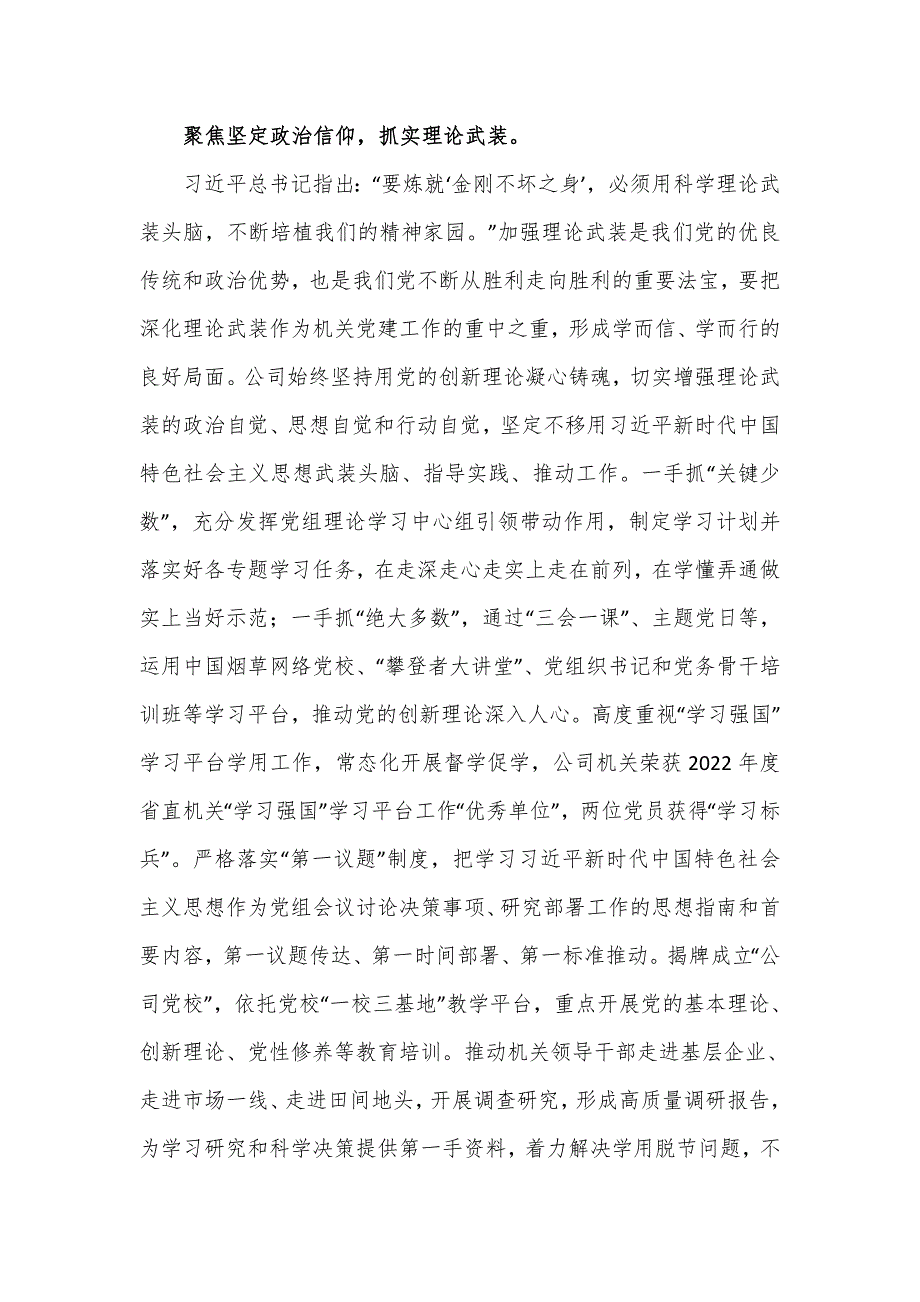 聚焦坚定政治信仰，抓实理论武装。
习近平总书记指出：“要炼就‘金刚不坏之身’，必须用科学理论武
装头脑，不断培植我们的精神家园。”加强理论武装是我们党的优良
传统和政治优势，也是我们党不断从胜利走向胜利的重要法宝，要把
深化理论武装作为机关党建工作的重中之重，形成学而信、学而行的
良好局面。公司始终坚持用党的创新理论凝心铸魂，切实增强理论武
装的政治自觉、思想自觉和行动自觉，坚定不移用习近平新时代中国
特色社会主义思想武装头脑、指导实践、推动工作。一手抓“关键少
数”，充分发挥党组理论学习中心组引领带动作用，制定学习计划并
落实好各专题学习任务，在走深走心走实上走在前列，在学懂弄通做
实上当好示范；一手抓“绝大多数”，通过“三会一课”、主题党日等，
运用中国烟草网络党校、“攀登者大讲堂”、党组织书记和党务骨干培
训班等学习平台，推动党的创新理论深入人心。高度重视“学习强国”
学习平台学用工作，常态化开展督学促学，公司机关荣获 2022 年度
省直机关“学习强国”学习平台工作“优秀单位”，两位党员获得“学习标
兵”。严格落实“第一议题”制度，把学习习近平新时代中国特色社会
主义思想作为党组会议讨论决策事项、研究部署工作的思想指南和首
要内容，第一议题传达、第一时间部署、第一标准推动。揭牌成立“公
司党校”，依托党校“一校三基地”教学平台，重点开展党的基本理论、
创新理论、党性修养等教育培训。推动机关领导干部走进基层企业、
走进市场一线、走进田间地头，开展调查研究，形成高质量调研报告，
为学习研究和科学决策提供第一手资料，着力解决学用脱节问题，不